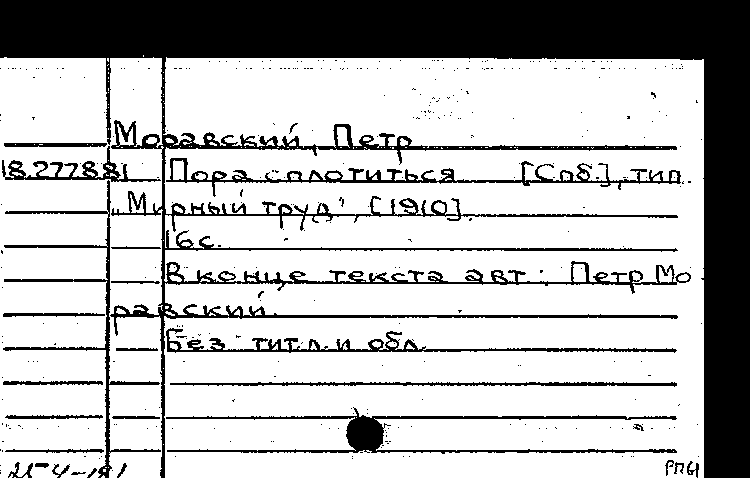 Моравский, Петр
18.277881 Пора сплотиться [Спб.], тип.
„Мирный труд", [1910].
16 с.
В конце текста авт.: Петр Мо
равский.
Без тит.л. и обл.
РПб1